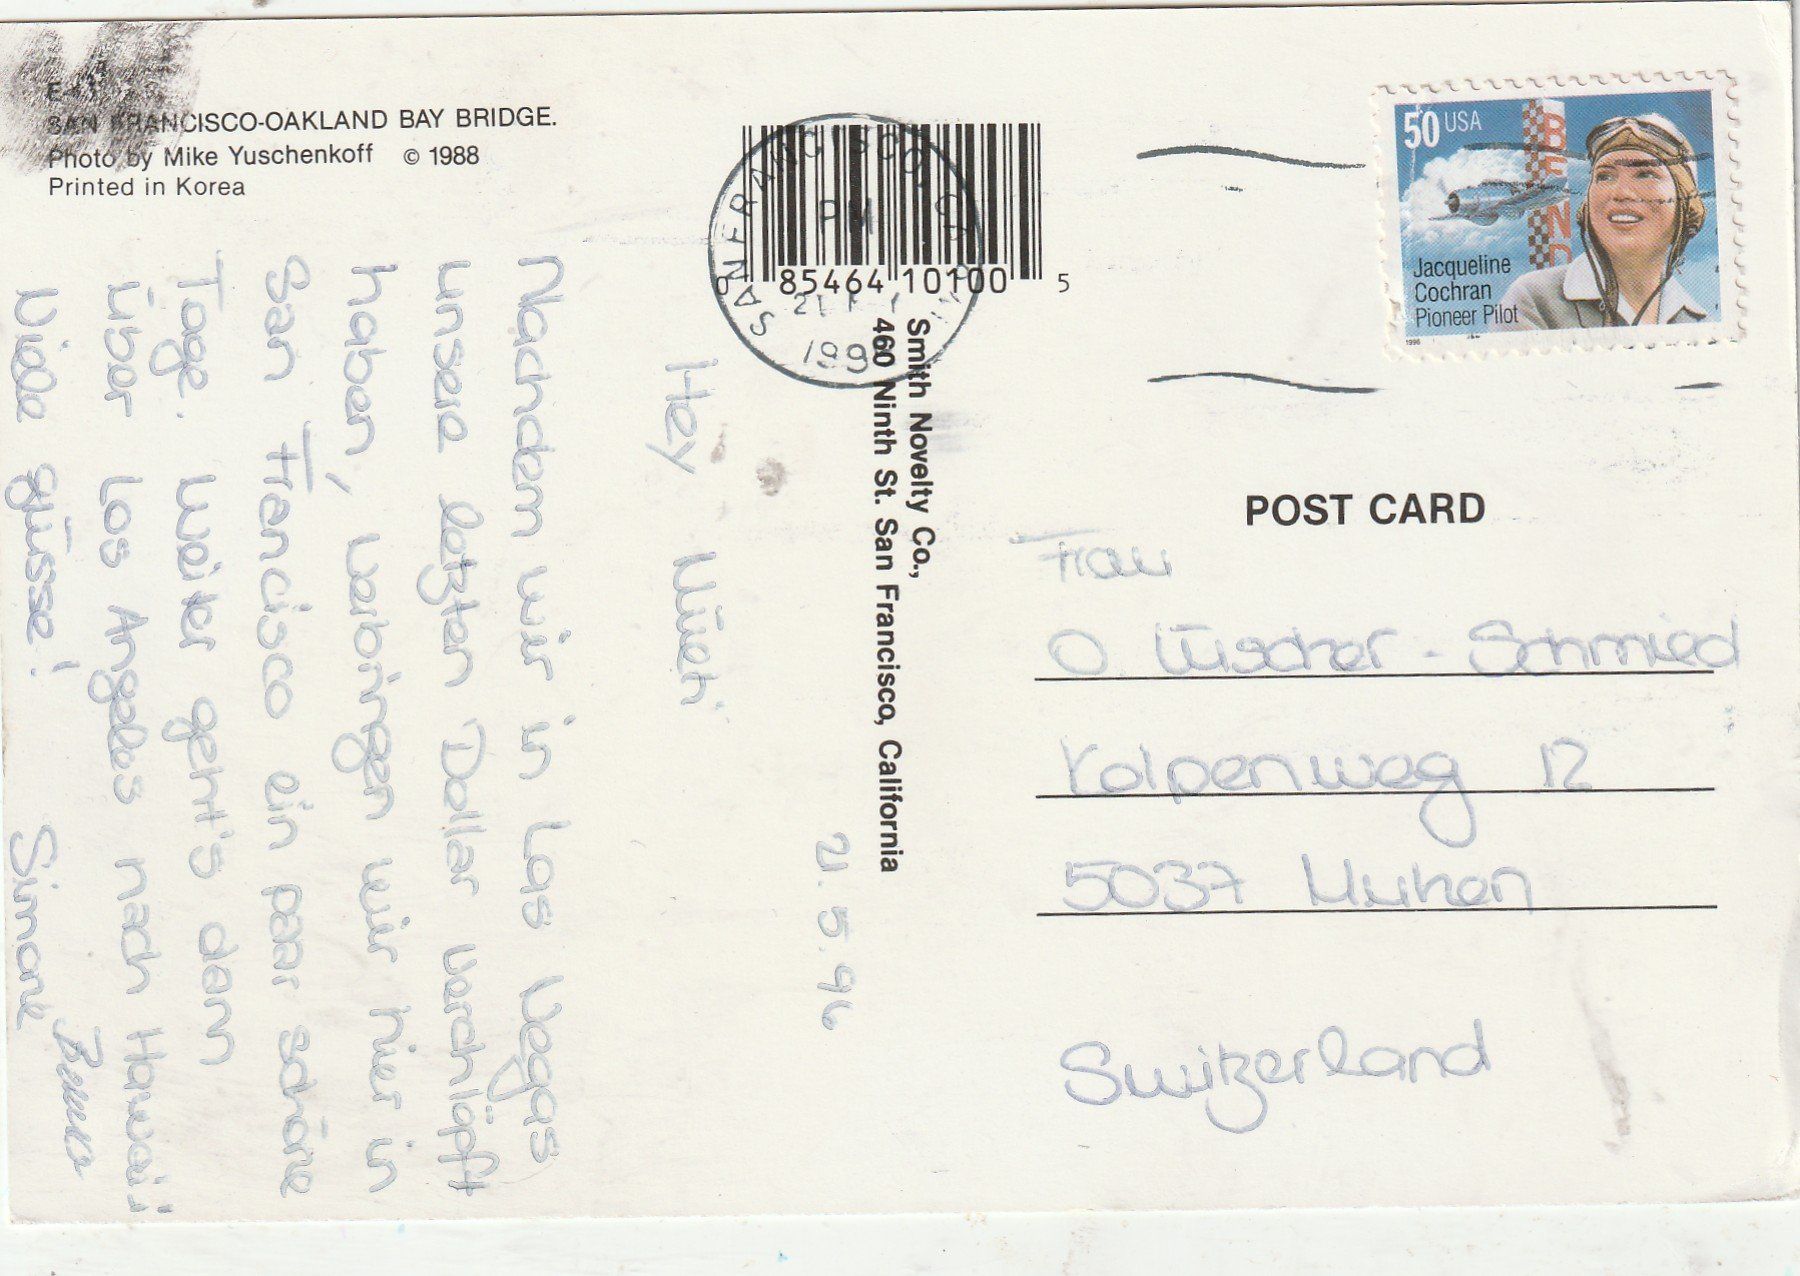 SAN FRANCISCO-OAKLAND BAY BRIDGE.
Photo by Mike Yuschenkoff © 1988
Printed in Korea
0 85464 10100 5
SAN FRANCISCO, CA
PM
21
199
Smith Novelty Co.,
460 Ninth St. San Francisco, California
50 USA
BEND
Jacqueline
Cochran
Pioneer Pilot
1996
POST CARD
21.5.96
Hey Müeti
Nachdem wir in Las Vegas
unsere letzten Dollar verchlöpft
haben, verbringen wir hier in
San Francisco ein paar schöne
Tage. Weiter geht's dann
über Los Angeles nach Hawaii.
Viele grüsse!
Simone
Frau
O Lüscher - Schmied
Kolpenweg 12
5037 Muhen
Switzerland